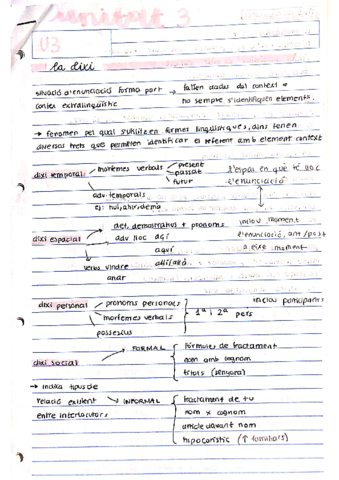 unitat 3
U3
la dixi
situació d'enunciació forma part → falten dades del context =
context extralingüístic no sempre s'identifiquen elements.
→ fenomen pel qual s'utilitzen formes lingüístiques, dins tenen
diversos trets que permeten identificar el referent amb element context
dixi temporal → morfemes verbals → present
passat
futur
adv. temporals
ej: hui, ahir, demà
l'espai en què té lloc
l'enunciació
dixi espacial → det. demostratius + pronoms
adv lloc ací
aquí
allí/allà
verbs vindre
anar
inclou moment
l'enunciació, ant/post
a eixe moment
dixi personal → pronoms personals
morfemes verbals
possessius
1ª i 2ª pers
inclou participants
dixi social → FORMAL → fórmules de tractament
nom amb cognom
títols (senyora)
→ indica tipus de
relació existent → INFORMAL → tractament de tu
entre interlocutors nom x cognom
article davant nom
hipocorístic (↑ familiars)